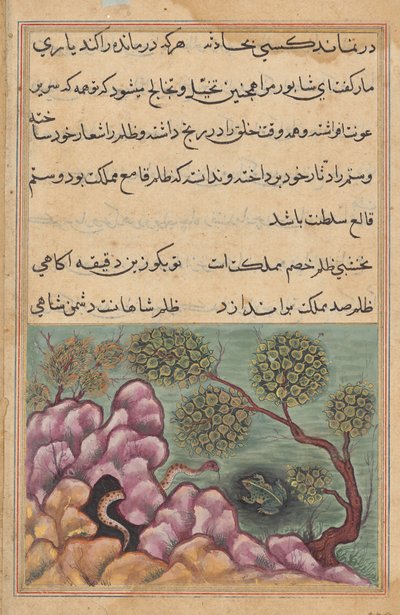 در نماند کسی بحادثه هرکه درمانده را کند یاری
مار گفت ای شاپور مرا همچنین تخیل و تخالج میشود که تو همه که سر بر
عونت افراشته و همه وقت خلق را در رنج داشته و ظلم را شعار خود ساخته
و ستم را دثار خود پرداخته و ندانسته که ظلم قامع مملکت بود و ستم
قالع سلطنت باشد
نخشبی ظلم خصم مملکت است تو بکوزین دقیقه آکاهی
ظلم صد مملکت براندازد ظلم شاهانست دشمن شاهی